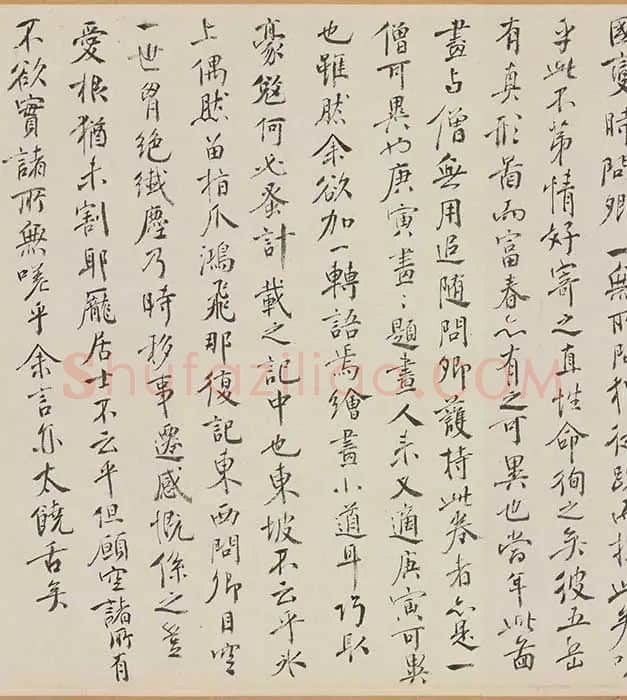 國變時問卿一無所問
乎此不第情好寄之直性命徇之矣彼五岳
有真形啚而富春亦有之可異也當年此啚
畫与僧無用追隨問卿護持此卷者亦是一
僧可異也庚寅畫〻題畫人來又適庚寅可異
也雖然余欲加一轉語焉繪畫小道耳巧取
豪奪何必蚤計載之記中也東坡不云乎氷
上偶然留指爪鴻飛那復記東西問卿目空
一世胷絕纖塵乃時移事遷感慨係之豈
愛根猶未割耶龐居士不云乎但願空諸所有
不欲實諸所無嗟乎余言亦太饒舌矣
Shufaziliao.COM